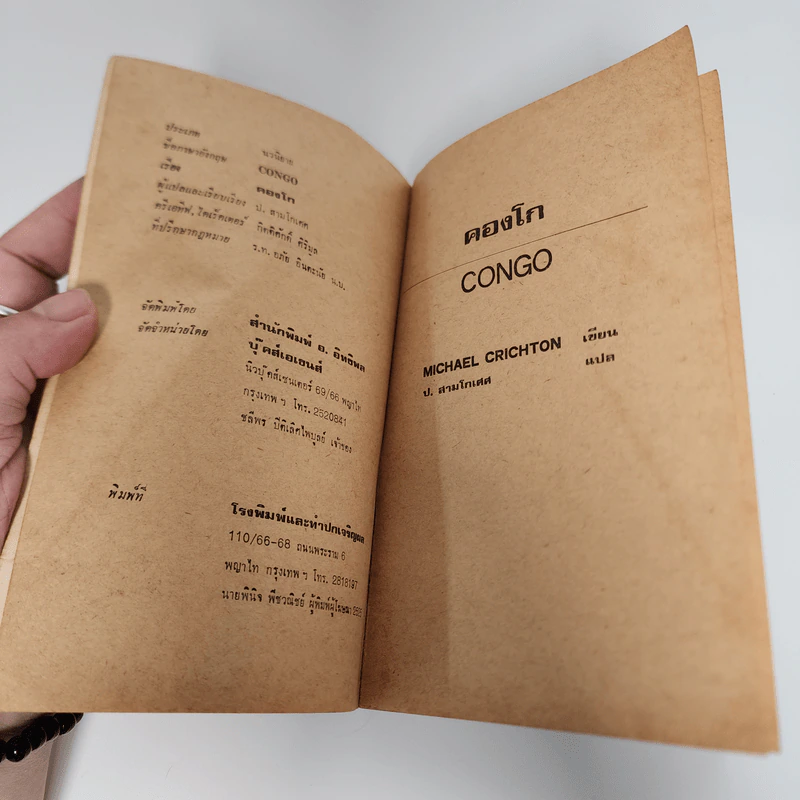 ประเภท นวนิยาย
ชื่อภาษาอังกฤษ CONGO
เรื่อง คองโก
ผู้แปลและเรียบเรียง ป. สามโกเศศ
ครีเอทีฟ, ไดเร็คเตอร์ กิตติศักดิ์ ศิริมูล
ที่ปรึกษากฎหมาย ร.ท. อภัย อินตะนัย น.บ.
จัดพิมพ์โดย สำนักพิมพ์ อ. อิทธิพล
จัดจำหน่ายโดย บุ๊คส์เอเยนส์
นิวบุ๊คส์เซนเตอร์ 69/66 พญาไท
กรุงเทพ ฯ โทร. 2520841
ชลีพร ปิติเลิศไพบูลย์ เจ้าของ
พิมพ์ที่ โรงพิมพ์และทำปกเจริญผล
110/66-68 ถนนพระราม 6
พญาไท กรุงเทพ ฯ โทร. 2818197
นายพินิจ พืชวณิชย์ ผู้พิมพ์ผู้โฆษณา
คองโก
CONGO
MICHAEL CRICHTON เขียน
ป. สามโกเศศ แปล